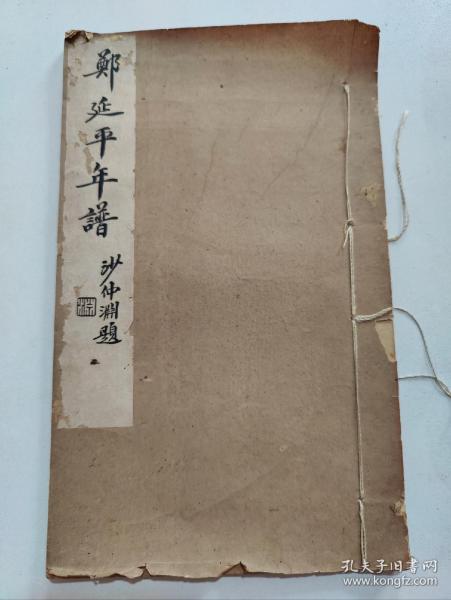 鄭延平年譜
沙仲淵題
孔夫子旧书网
www.kongfz.com